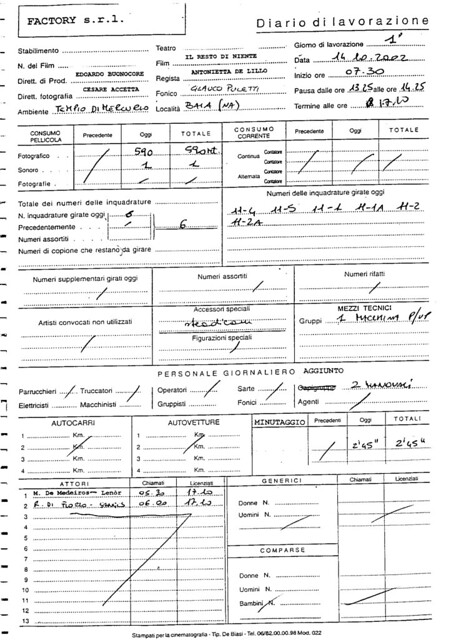 FACTORY s.r.l.
Diario di lavorazione
Stabilimento
Teatro
Giorno di lavorazione 1°
N. del Film
Film IL RESTO DI NIENTE
Data 14.10.2002
Dirett. di Prod. EDOARDO BUONOCORE
Regista ANTONIETTA DE LILLO
Inizio ore 07.30
Dirett. fotografia CESARE ACCETTA
Fonico GLAUCO PULETTI
Pausa dalle ore 13.25 alle ore 14.25
Ambiente TEMPIO DI MERCURIO
Località BAIA (NA)
Termine alle ore 17.20
CONSUMO PELLICOLA Precedente Oggi TOTALE
Fotografico 590 590 mt.
Sonoro 1 1
Fotografie
CONSUMO CORRENTE Precedente Oggi TOTALE
Continua Contatore Contatore
Alternata Contatore Contatore
Totale dei numeri delle inquadrature
N. inquadrature girate oggi 6
Precedentemente 6
Numeri assortiti
Numeri di copione che restano da girare
Numeri delle inquadrature girate oggi
11-4 11-5 11-1 11-1A 11-2
11-2A
Numeri supplementari girati oggi
Numeri assortiti
Numeri rifatti
Artisti convocati non utilizzati
Accessori speciali
Figurazioni speciali
MEZZI TECNICI
Gruppi 1 MACCHINA P/UP
PERSONALE GIORNALIERO AGGIUNTO
Parrucchieri Truccatori Operatori Sarte 2 MANOVALI
Elettricisti Macchinisti Gruppisti Fonici Agenti
AUTOCARRI
1 Km.
2 Km.
3 Km.
4 Km.
AUTOVETTURE
1 Km.
2 Km.
3 Km.
4 Km.
MINUTAGGIO Precedenti Oggi TOTALI
2'45" 2'45"
ATTORI Chiamati Licenziati
1 M. De Medeiros Lenòr 05.30 17.20
2 R. DI 06.00 17.20
3
4
5
6
7
8
9
10
11
12
13
GENERICI Chiamati Licenziati
Donne N.
Uomini N.
COMPARSE
Donne N.
Uomini N.
Bambini N.
Stampati per la cinematografia - Tip. De Biasi - Tel. 06/82.00.00.98 Mod. 022